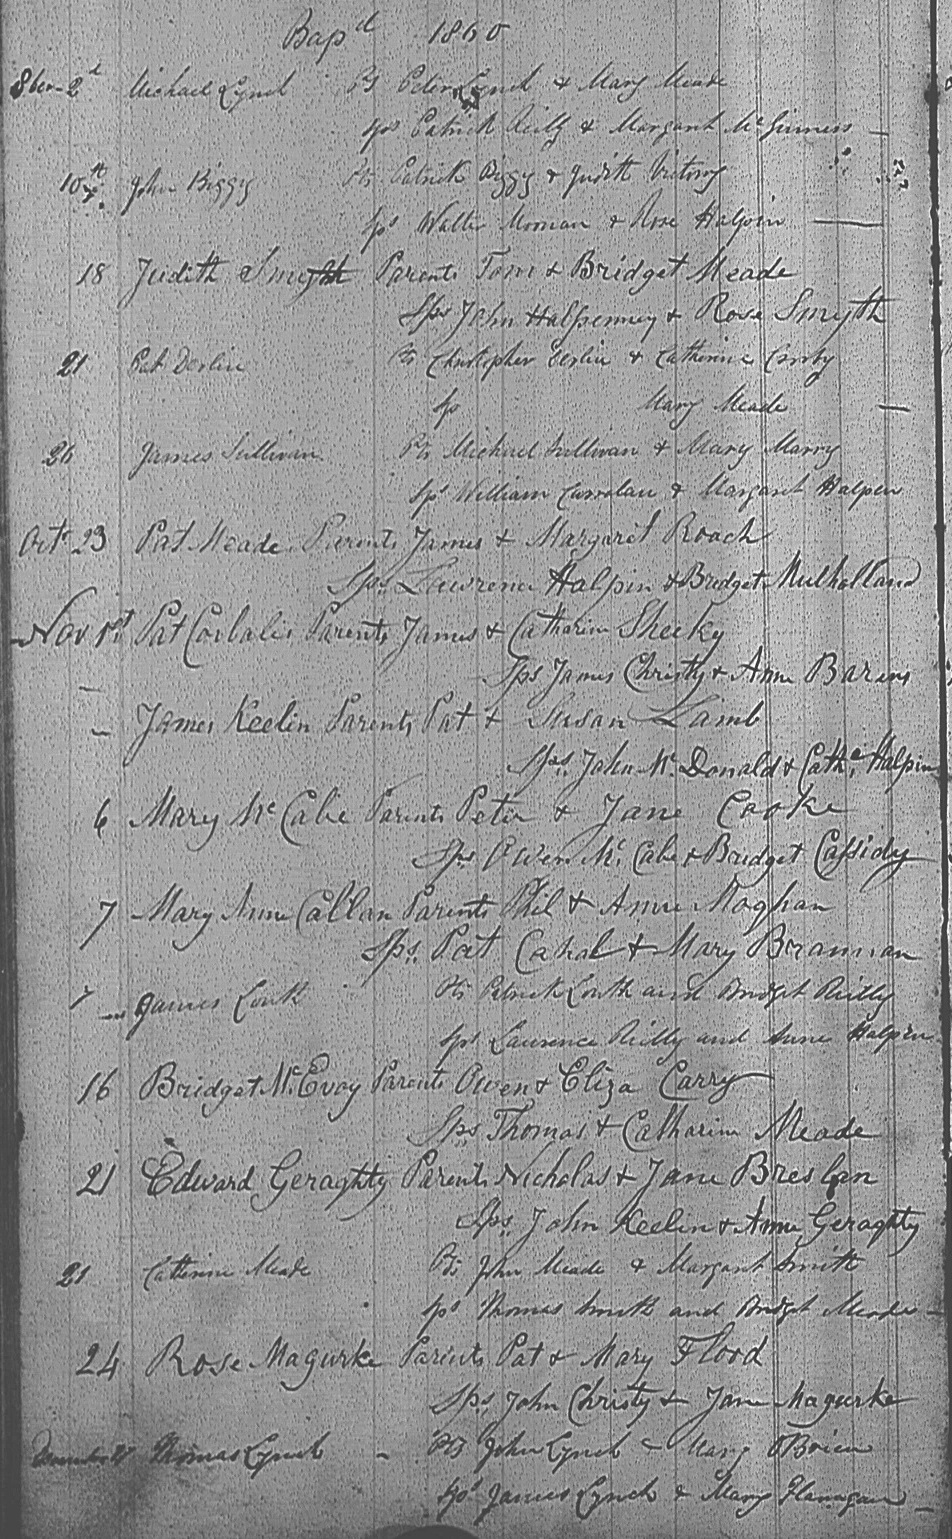 Bapd 1860
8ber 2d Michael Lynch Ps Peter Lynch & Mary Meade
Sps Patrick Reilly & Margaret McGinness
10th John Biggy Ps Patrick Biggy & Judith Victory
Sps Walter & Rose Halpin
18 Judith Smyth Parents Tom & Bridget Meade
Sps John Halpenney & Rose Smyth
21 Pat Derlin Ps Christopher Derlin & Catherine
Sp Mary Meade
26 James Sullivan Ps Michael Sullivan & Mary Marry
Sps William Carrolan & Margaret Halpen
Oct 23 Pat Meade Parents James & Margaret Roach
Sps. Lawrence Halpin & Bridget Mulholland
Nov 1st Pat Corbalis Parents James & Catharine Sheeky
Sps James Christy & Anne Barens
James Keelin Parents Pat & Susan Lamb
Sps. John Mc Donald & Cathe Halpin
6 Mary Mc Cabe Parents Peter & Jane Cooke
Sps Owen Mc Cabe & Bridget Cassidy
7 Mary Anne Callan Parents Phil & Anne Moghan
Sps. Pat Cahal & Mary Brannan
7 James Louth Ps Patrick Louth and Bridget Reilly
Sps Laurence Reilly and Anne Halpin
16 Bridget McEvoy Parents Owen & Eliza Carry
Sps Thomas & Catharine Meade
21 Edward Geraghty Parents Nicholas & Jane Breslan
Sps. John Keelin & Anne Geraghty
21 Catherine Meade Ps John Meade & Margaret Smith
Sps Thomas Smith and Bridget Meade
24 Rose Magurke Parents Pat & Mary Flood
Sps. John Christy & Jane Magurke
Thomas Lynch Ps John Lynch Mary OBrien
Sps James Lynch & Mary Flanagan